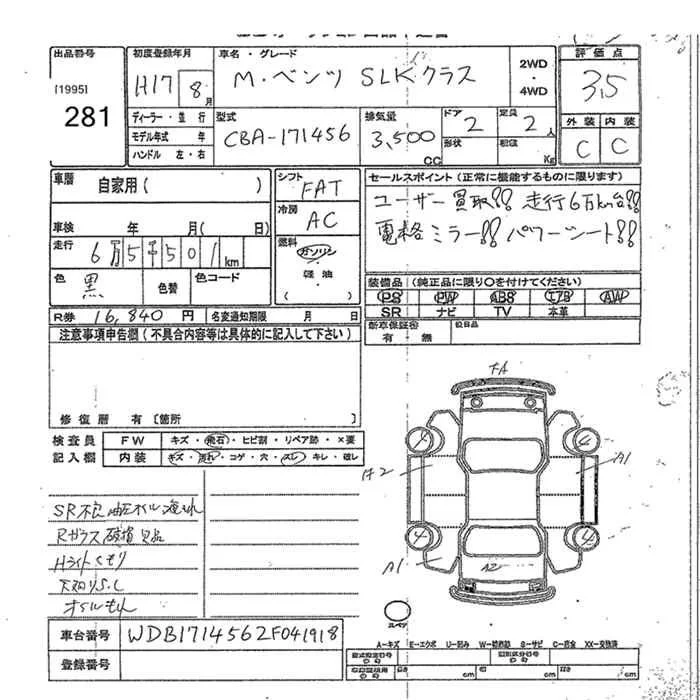 出品番号
[1995]
281
初度登録年月
H17 8月
車名・グレード
M・ベンツ SLKクラス
2WD
・
4WD
評価点
3.5
外装 内装
C C
ディーラー・並行
モデル年式 年
ハンドル 左・右
型式
CBA-171456
排気量
3,500 CC
ドア
2
形状
定員
2人
積載
Kg
車歴
自家用( )
シフト
FAT
セールスポイント(正常に機能するものに限ります)
ユーザー買取!! 走行6万km台!!
電格ミラー!! パワーシート!!
車検 年 月( 日)
冷房
AC
走行
6万5501km
燃料
ガソリン
軽油
( )
色
黒
色替
色コード
装備品(純正品に限り○を付けてください)
PS PW ABS エアB AW
SR ナビ TV 本革
R券 16,840円
名変通知期限 月 日
新車保証書
有・無
欠品
注意事項申告欄(不具合内容等は具体的に記入して下さい)
修復歴 有[箇所 ]
検査員
記入欄
FW キズ・飛石・ヒビ割・リペア跡・×要
内装 キズ・汚れ・コゲ・穴・スレ・キレ・破レ
SR不良
Rガラス破損 欠品
Hライトくもり
オイルもれ
A2
A1
4
4
4
A1
A2
A-キズ E-エクボ U-凹み W-補修跡 S-サビ C-腐食 XX-交換済
車台番号
WDB1714562F041918
登録番号
cm cm cm